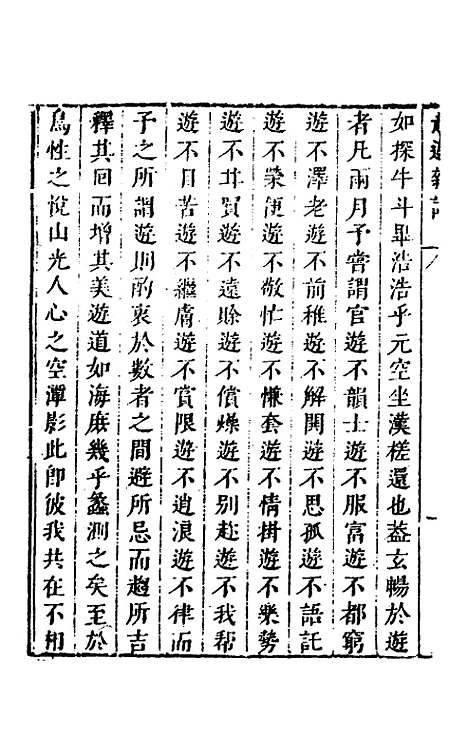 如探牛斗畢浩浩乎元空坐漢槎還也葢玄暢於遊
者凡兩月予嘗謂官遊不韻士遊不服富遊不都窮
遊不澤老遊不前稚遊不解閧遊不思孤遊不語託
遊不榮便遊不敬忙遊不慊套遊不情掛遊不樂勢
遊不甘買遊不遠賒遊不償燥遊不別趁遊不我幫
遊不目苦遊不繼膚遊不賞限遊不逍浪遊不律而
子之所謂遊則酌衷於數者之間避所忌而趨所吉
釋其回而增其美遊道如海庶幾乎蠡測之矣至於
鳥性之悅山光人心之空潭影此卽彼我共在不相